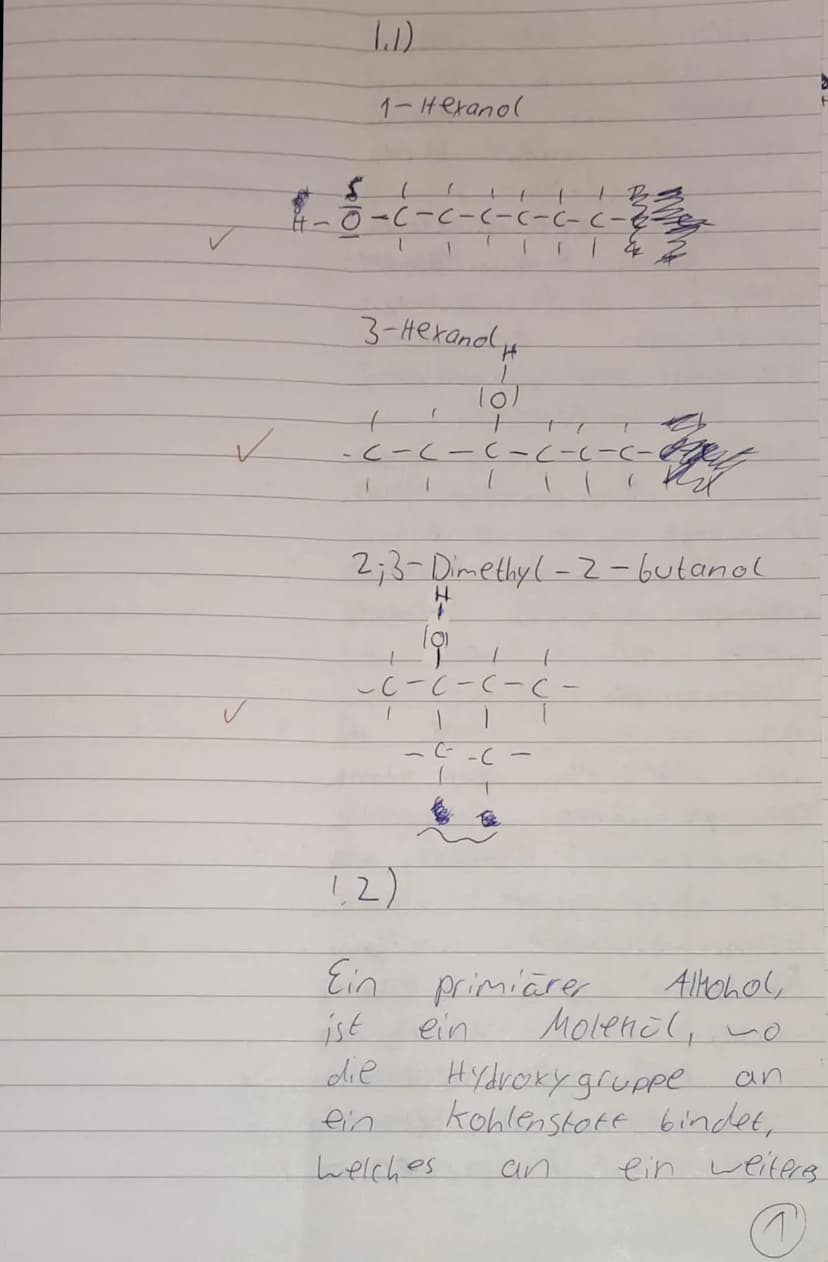 1.1)
1-Hexanol
H-O-C-C-C-C-C-C-
3-Hexanol
H
|
|O|
-C-C-C-C-C-C-
2;3-Dimethyl-2-butanol
H
|
|O|
-C-C-C-C-
-C- -C-
1.2)
Ein primiärer Alkohol,
ist ein Molekül, wo
die Hydroxygruppe an
ein Kohlenstoff bindet,
welches an ein weiteres
1